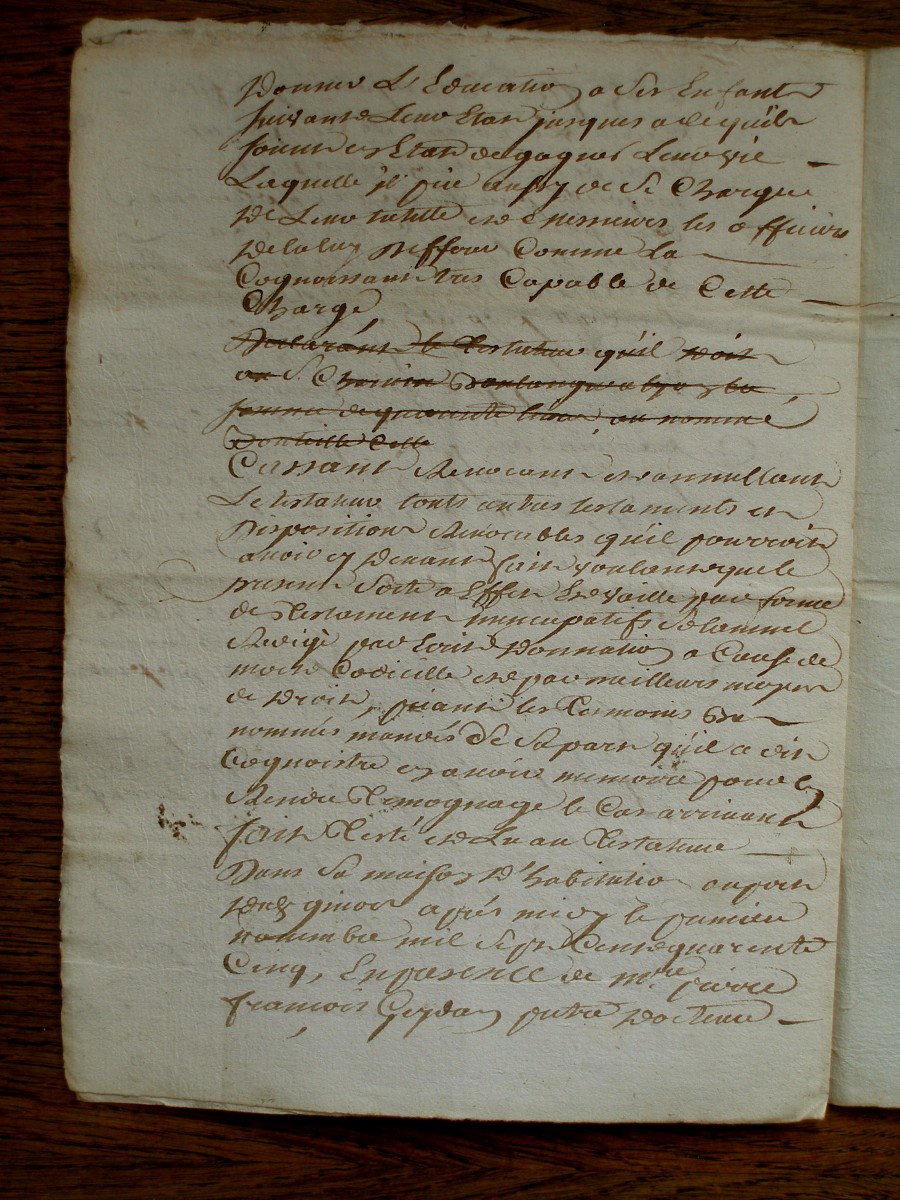 Donner L'Education a Ses Enfants
suivant Leur Etat jusques a ce quils
soient en Etat de gagner Leur vie
Laquelle il prie aussy de se Charger
de Leur tutelle et messieurs les officiers
de la luy defferer Comme La
Cognoissant tres Capable de Cette
Charge,
Declarant le Testateur qu'il doit
au S. Boulanger la
somme de quarente livres, au nommé
Cassant Revocant et annullant
Le testateur touts autres testaments et
Dispositions Revocables qu'il pourroit
avoir cy devant fait voulant que le
present Sorte a Effet et vaille par forme
de Testament Nuncupatif Solamnel
Redigé par Ecrit Donnation a Cause de
mort Codicille et par meilleurs moyen
de Droit, priant les Temoins
nommés mandés de Sa part qu'il a dit
Cognoistre et avoir memoire pour en
Rendre Temognage le Cas arrivant
fait et Lu au Testateur
Dans Sa maison D'habitation au port
après midy le premier
novembre mil Sept Cent quarente
Cinq, En presence de m.re pierre
francois pretre Docteur